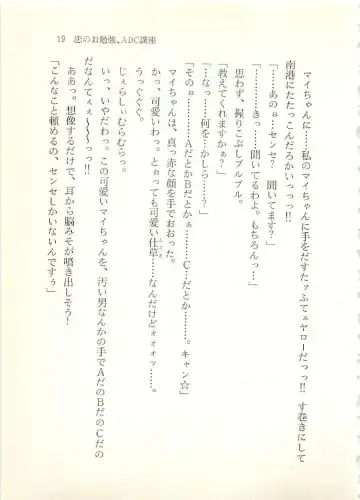 19 恋のお勉強、ABC講座
マイちゃんに……私のマイちゃんに手をだすたァふてェヤローだっっ!! す巻きにして
南港にたたっこんだろかいっっっ!!
「……あのぉ…センセ? 聞いてます?」
「……き……聞いてるわよ。もちろんっ…」
思わず、握りこぶしブルブル。
「教えてくれますかぁ?」
「…なっ……何を…かしら……?」
「そのぉ……AだとかBだとかぁ………C…だとか………。キャン☆」
マイちゃんは、真っ赤な顔を手でおおった。
かっ、可愛いわっ。とぉっても可愛い仕草………なんだけどォォォッ……。
うっ、ぐぐぐ。
じぇらしぃむらむらっ。
いっ、いやだわっ。この可愛いマイちゃんを、汚い男なんかの手でAだのBだのCだの
だなんてぇぇ〜〜〜っっ!!
ああっ。想像するだけで、耳から脳みそが噴き出しそう!
「こんなこと頼めるの、センセしかいないんですぅ」